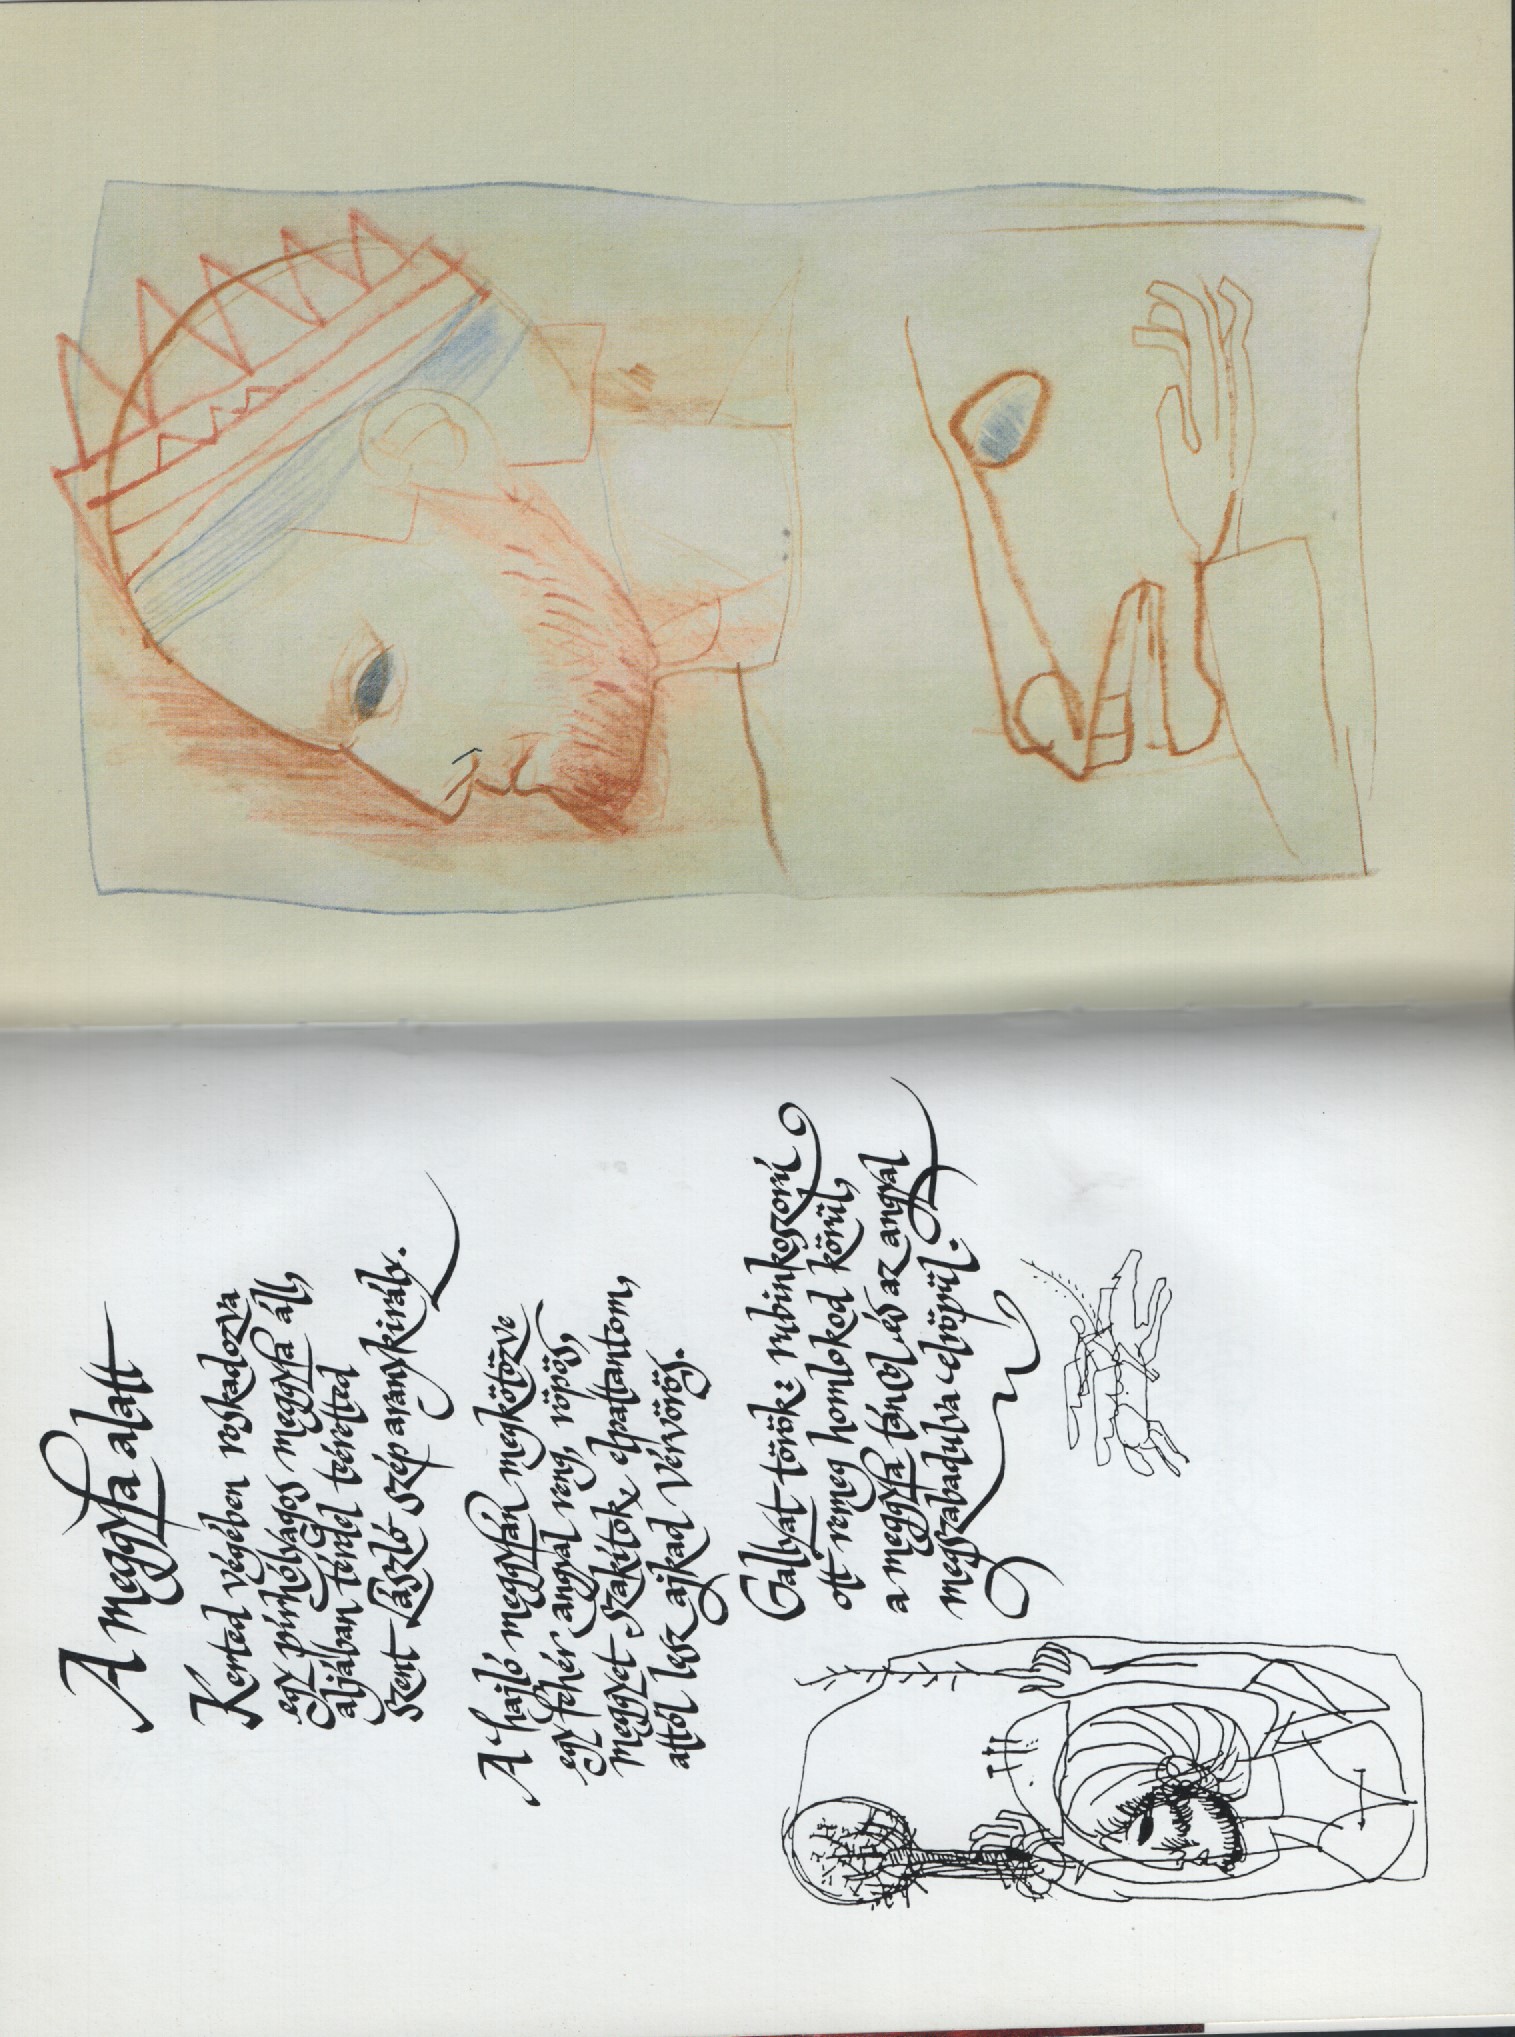 A meggyfa alatt
Kerted végében roskadozva
egy pírhólyagos meggyfa áll,
aljában térdel teéretted
Szent László szép aranykirály.
A hajló meggyfán megkötözve
egy fehér angyal reng, röpös,
meggyet szakítok, elpattantom,
attól lesz ajkad vérvörös.
Gallyat török: rubinkoszorú
ott remeg homlokod körül,
a meggyfa táncol és az angyal
megszabadulva elröpül.